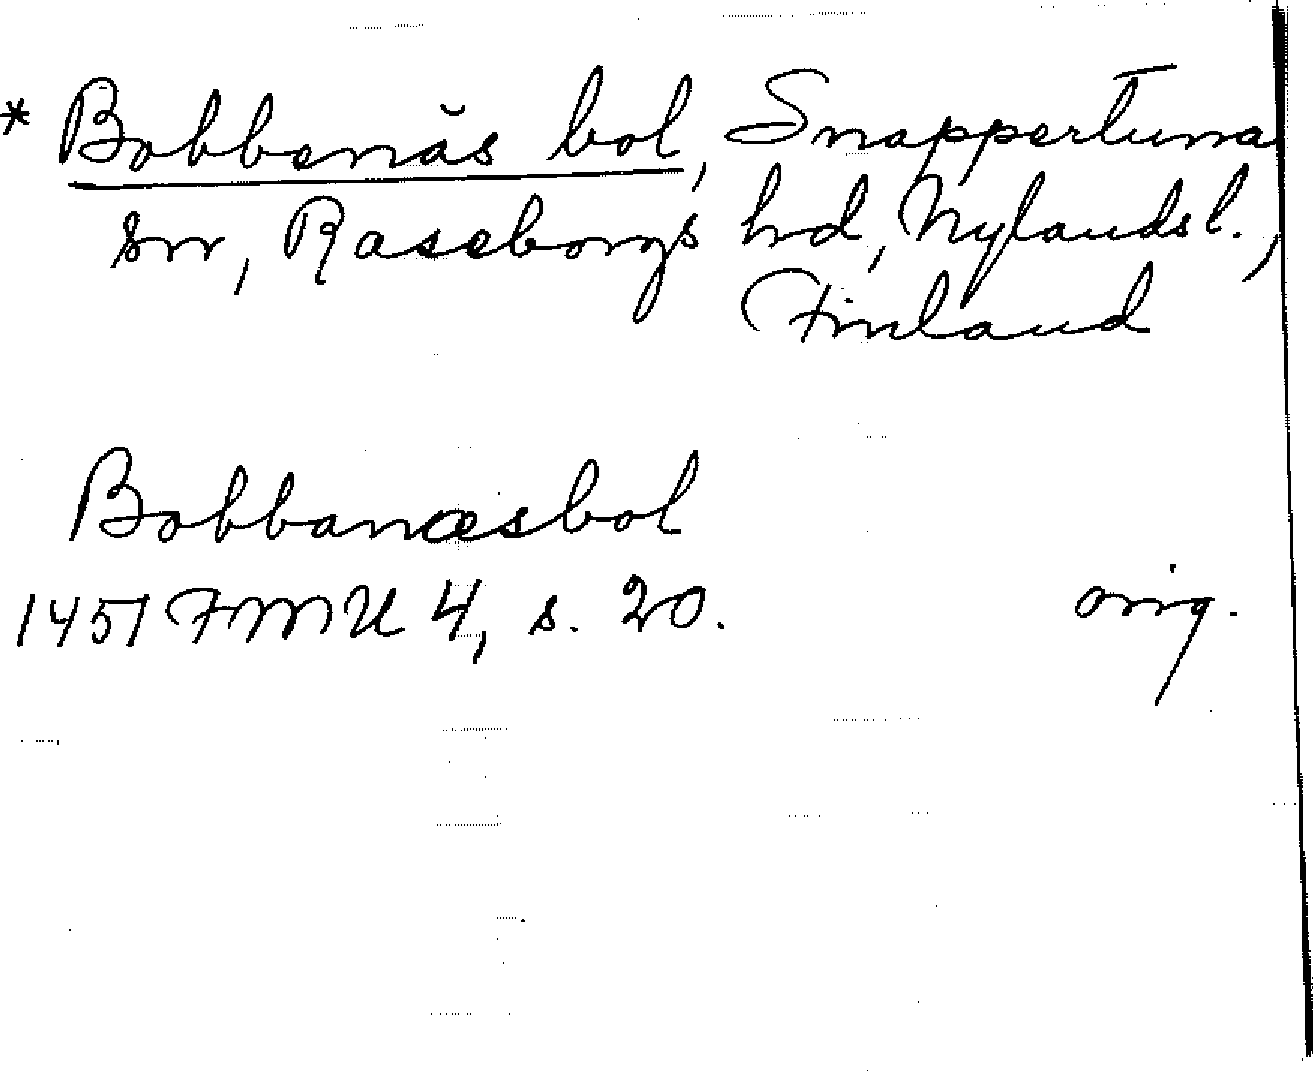 * Bobbenäs bol, Snappertuna
sn, Raseborgs hd, Nylands l.,
Finland
Bobbanæsbol
1451 FMU 4, s. 20. orig.